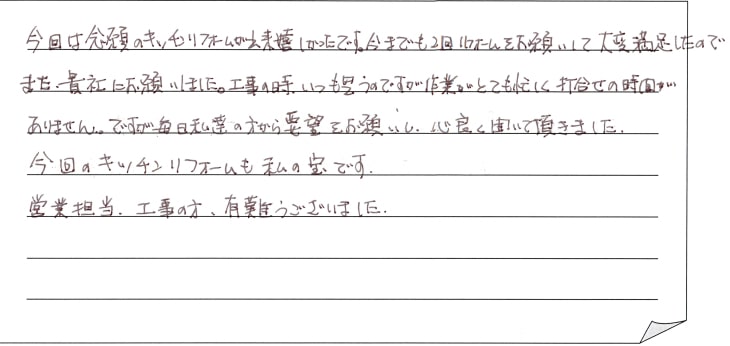 今回は念願のキッチンリフォームが出来嬉しかったです。今までも2回リフォームをお願いして大変満足したので
また貴社にお願いしました。工事の時、いつも思うのですが作業がとても忙しく打合せの時間が
ありません。ですが毎日私達の方から要望をお願いし、心良く聞いて頂きました。
今回のキッチンリフォームも私の宝です。
営業担当、工事の方、有難うございました。